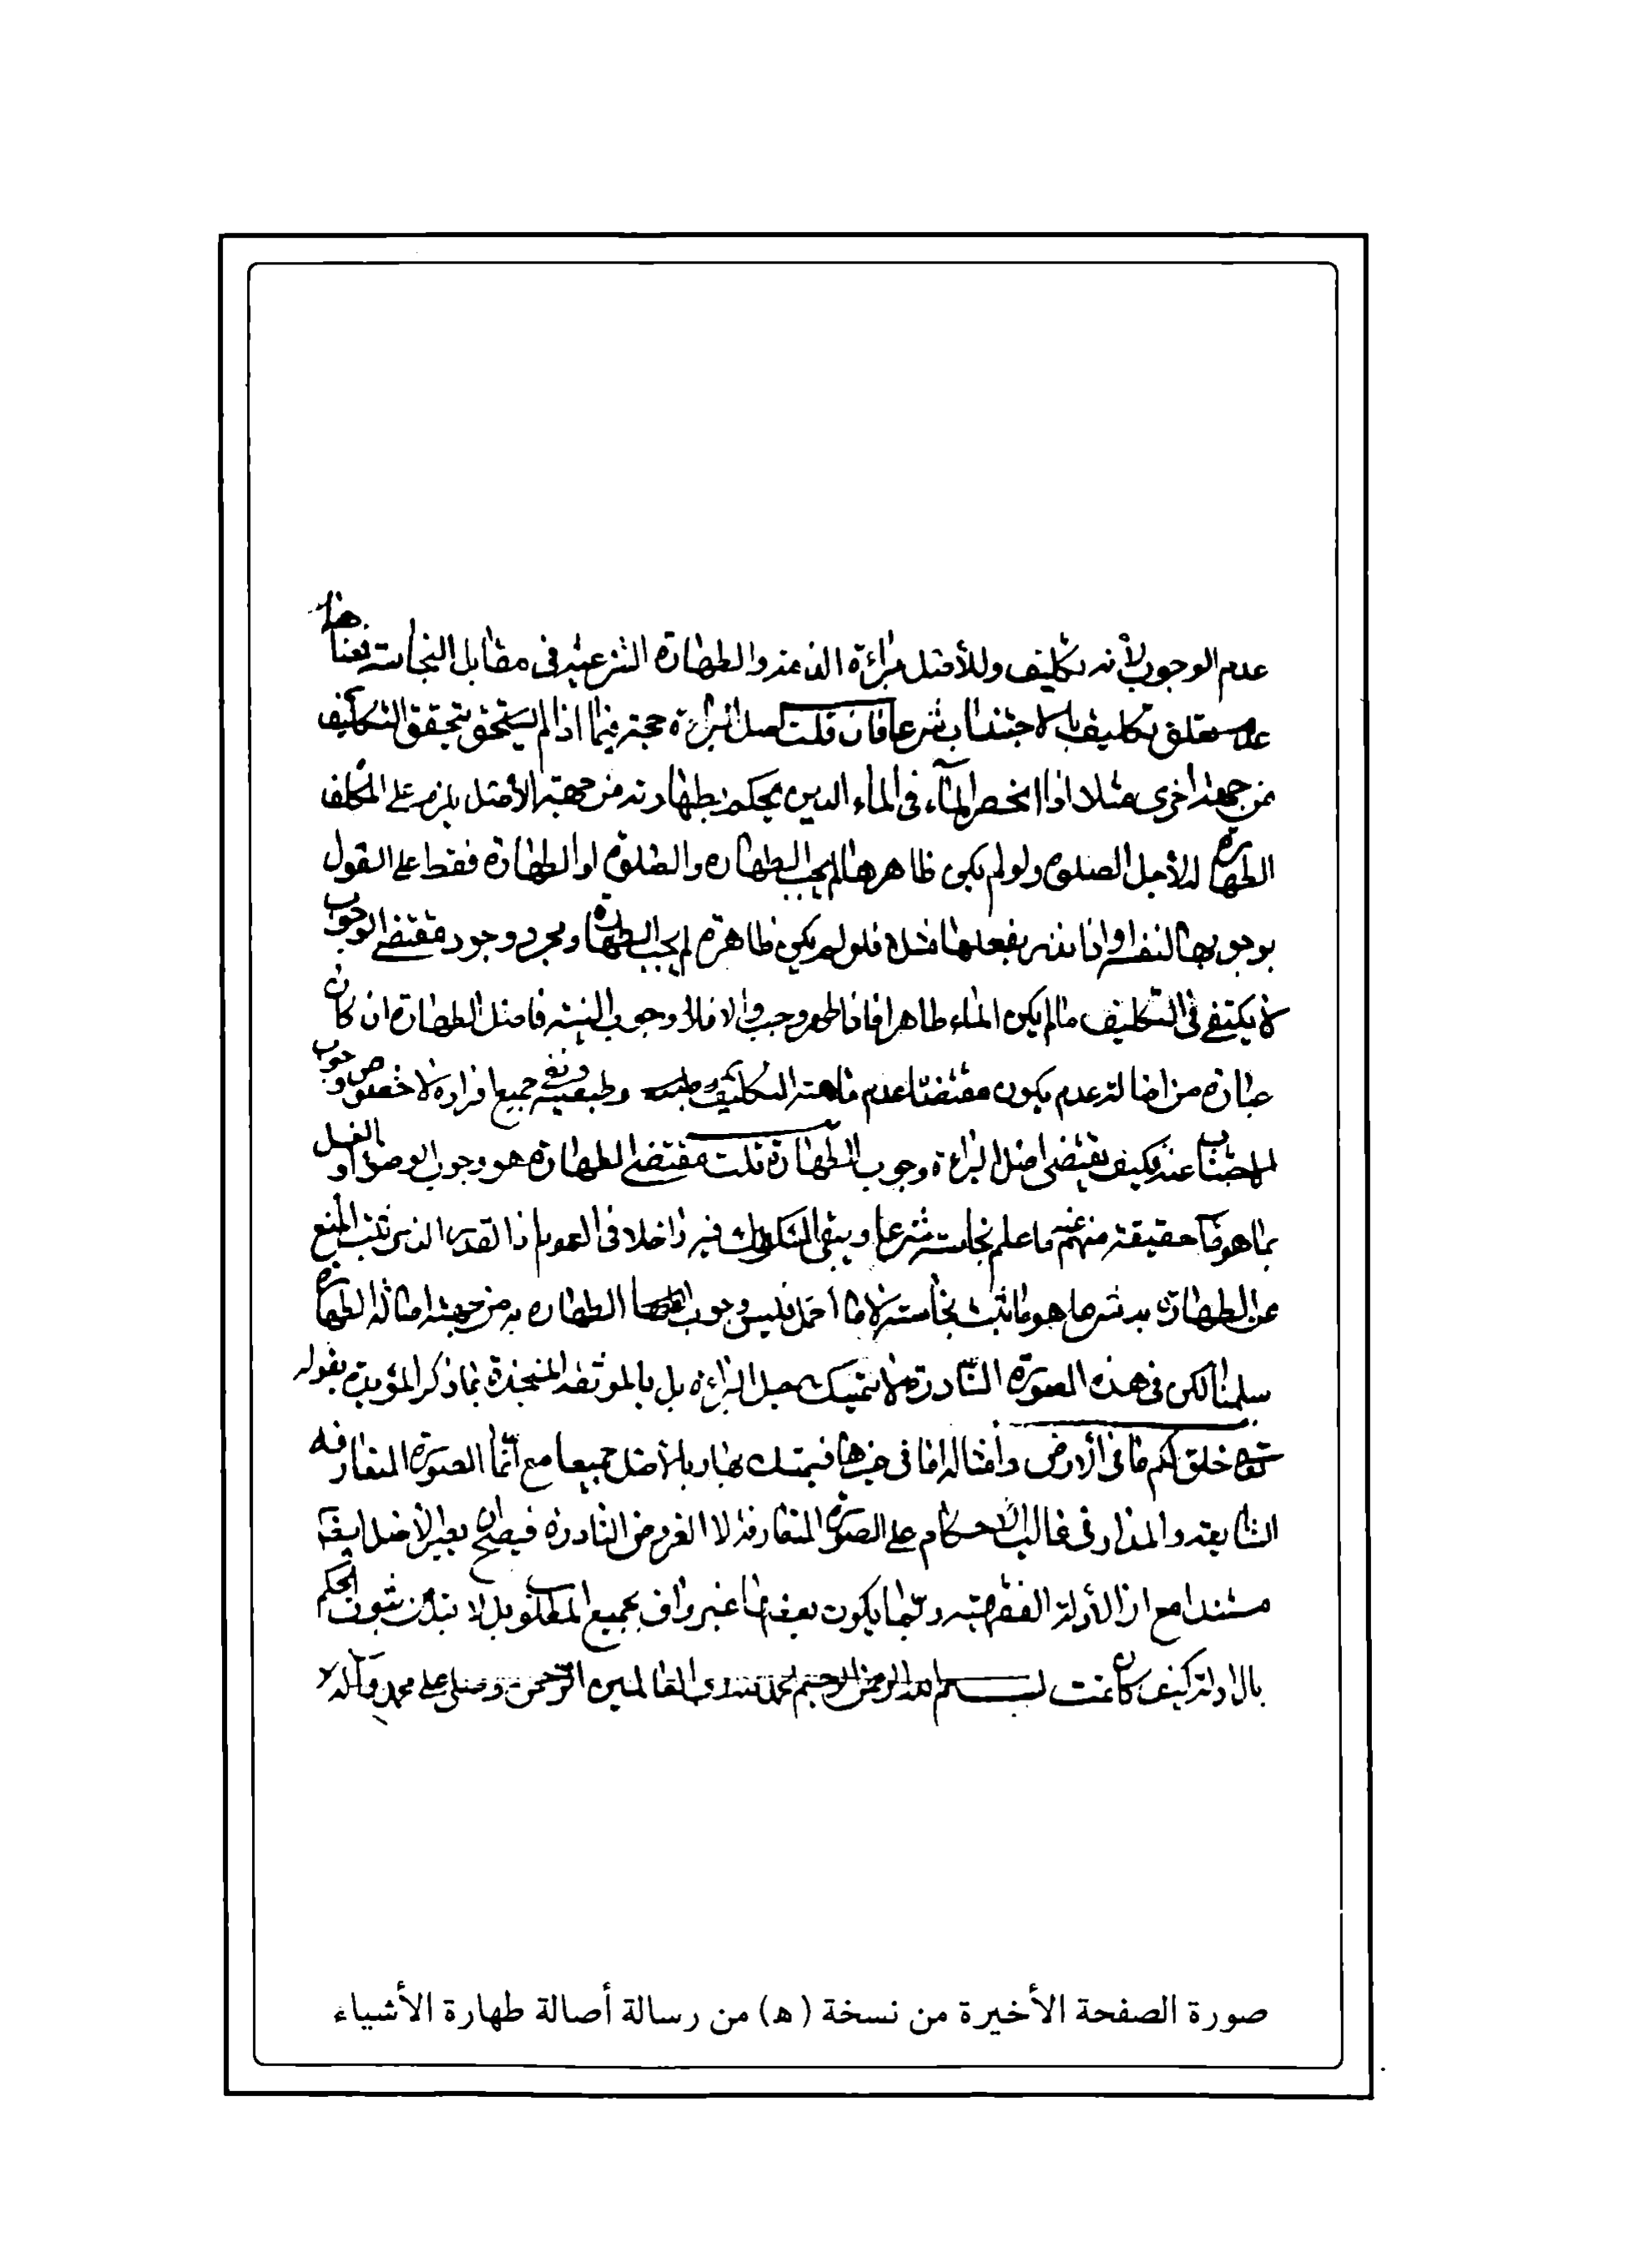 عدم الوجوب لأنه تكليف وللأصل براءة الذمة والطهارة الشرعية في مقابل النجاسة معناها
تعلق تكليف بالاجتناب شرعا فان قلت اصل البراءة حجة فيما اذا لم يتحقق التكليف
من جهة اخرى مثلا اذا انحصر الماء في الماء الذي يحكم بطهارته من جهة الأصل يلزم على المكلف
الطهارة لأجل الصلوة ولو لم يكن ظاهرها لم يجب الطهارة والصلوة او الطهارة فقط على القول
بوجوبها النفسي او اذا نذر بفعلها مثلا فلو لم يكن طاهرة لم يجب الطهارة ومجرد وجود مقتضى الوجوب
لا يكتفى في التكليف ما لم يكن الماء طاهرا فاذا طهر وجب والا فلا وجوب البتة فاصل الطهارة ان كان
عبارة من اصالة عدم يكون مقتضيا عدم ماهية التكليف وطبيعته ونفي جميع افراده لا خصوص وجوب
الاجتناب عنه فكيف يقتضى اصل البراءة وجوب الطهارة قلت مقتضى الطهارة هو وجوب الوضوء او الغسل
بما هو ماء حقيقة منه ما علم نجاسته شرعا ويبقى المشكوك فيه داخلا في العموم اذ القدر الذي ثبت المنع
عن الطهارة به شرعا هو ما ثبت نجاسته لا ما احتمل فليس وجوب الطهارة به من جهة اصالة الطهارة
سلمنا لكن في هذه الصورة النادرة لا نتمسك باصل البراءة بل بالموثقة المنجبرة بما ذكر المؤيدة بقوله
تعالى خلق لكم ما في الأرض وامثاله اما في غيرها فيتمسك بها وبالاصل جميعا مع أنها الصورة المتعارفة
الشايعة والمدار في غالب الاحكام على الصورة المتعارفة لا الفروض النادرة فيصح ان يصير الأصل ايضا
مستندا مع ان الأدلة الفقهية ربما يكون بعضها غير واف بجميع المطلوب بل لا بد من ثبوت الحكم
بالادلة كيف كانت بسم الله الرحمن الرحيم الحمد لله رب العالمين الرحمن وصلى على محمد وآله
صورة الصفحة الأخيرة من نسخة (ه) من رسالة أصالة طهارة الأشياء